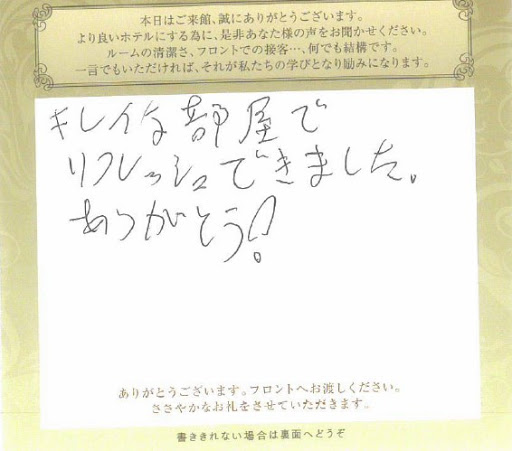 本日はご来館、誠にありがとうございます。
より良いホテルにする為に、是非あなた様の声をお聞かせください。
ルームの清潔さ、フロントでの接客…何でも結構です。
一言でもいただければ、それが私たちの学びとなり励みになります。
キレイな部屋で
リフレッシュできました。
ありがとう!
ありがとうございます。フロントへお渡しください。
ささやかなお礼をさせていただきます。
書ききれない場合は裏面へどうぞ